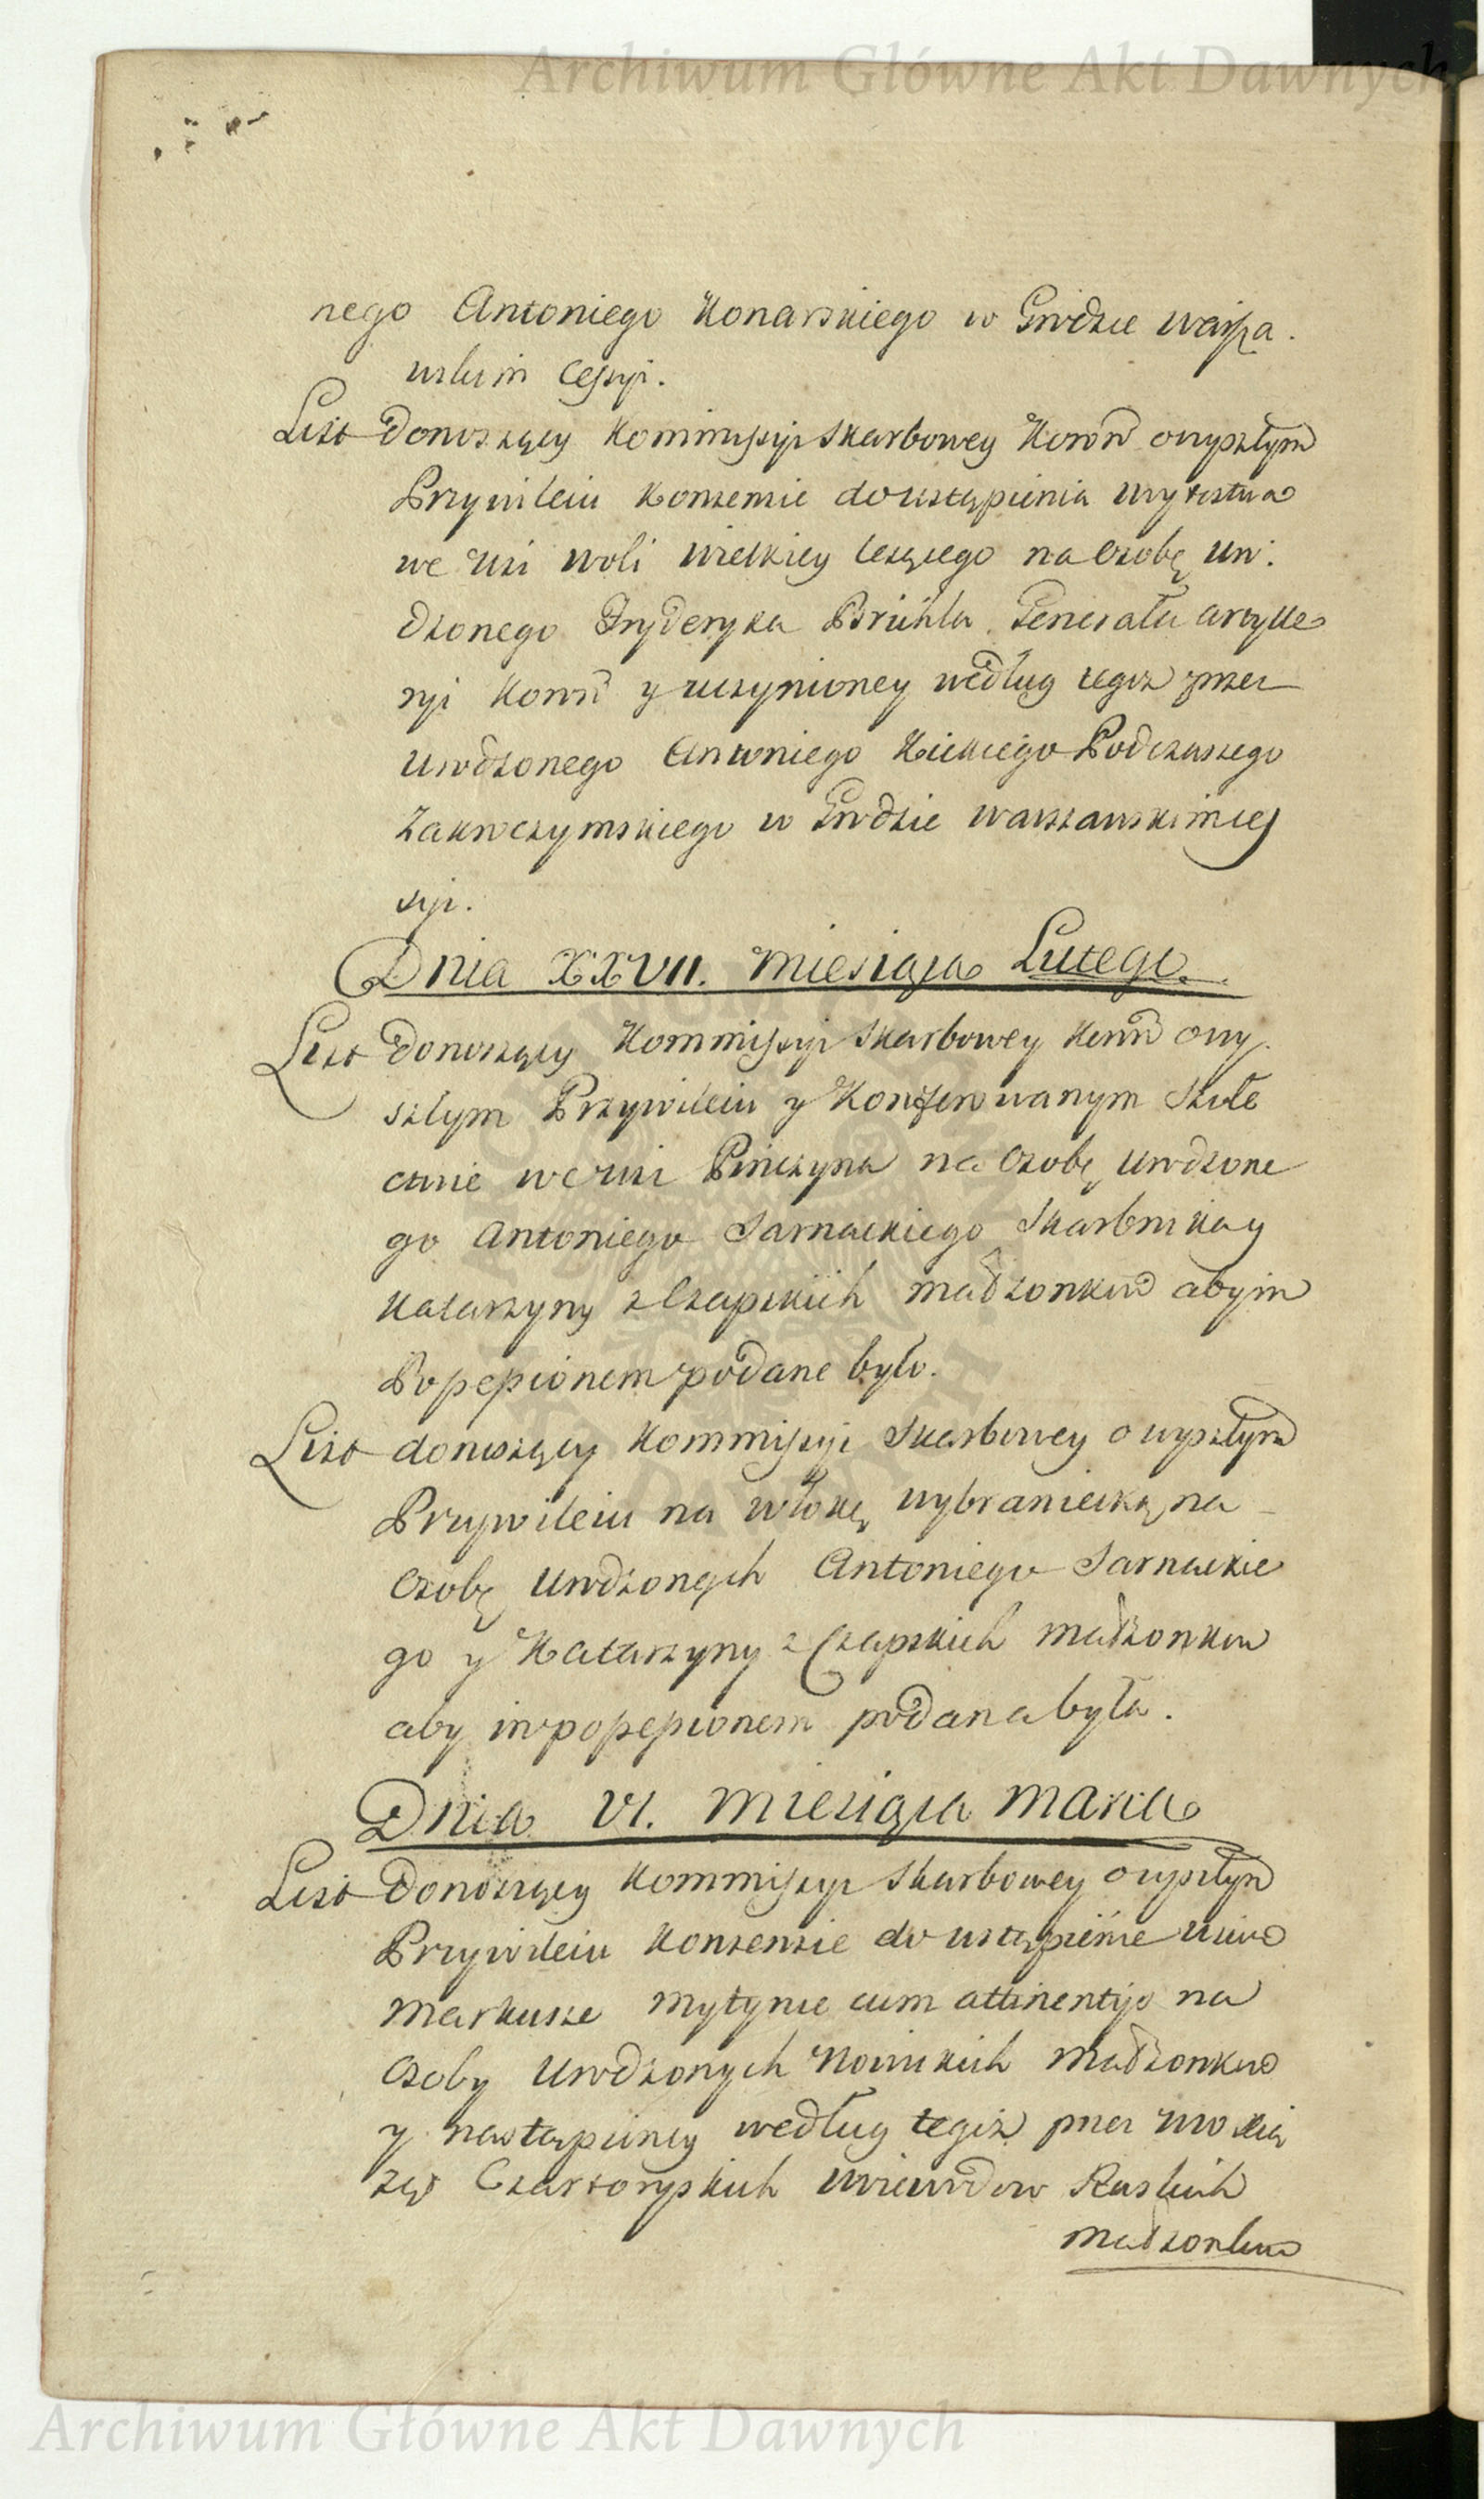 Archiwum Główne Akt Dawnych
nego Antoniego Konarskiego w Grodzie Warsza
wskim Cessyi.
List Donoszący Kommissyi Skarbowey Koron o wyszłym
Przywileiu Konsensie do ustąpienia Woytostwa
we wsi Woli Wielkiey leżącego na Osobę Uro:
dzonego Fryderyka Brühla Generała Artylle
ryi Koron y uczynioney według tegoż przez
Urodzonego Antoniego Kickiego Podczaszego
Zakroczymskiego w Grodzie Warszawskim Ces
syi.
Dnia XXVII. Miesiąca Lutego.
List Donoszący Kommissyi Skarbowey Koron o wy
szłym Przywileiu y Konferowanym Sołe
ctwie we wsi Pinczyna na Osobę Urodzone
go Antoniego Sarnackiego Skarbnika y
Katarzyny z Czapskich Małżonków aby im
Possessionem podane było.
List donoszący Kommissyi Skarbowey o wyszłym
Przywileiu na włokę wybraniecką na
Osobę Urodzonych Antoniego Sarnackie
go y Katarzyny z Czapskich Małżonków
aby im possessionem podana była.
Dnia VI. Miesiąca Marca
List Donoszący Kommissyi Skarbowey o wyszłym
Przywileiu Konsensie do ustąpienie wsiów
Markusze Mytynie cum attinentijs na
Osoby Urodzonych Małżonków
y nastąpioney według tegoż przez
żąt Czartoryskich Woiewodow Ruskich
Małżonków
Archiwum Główne Akt Dawnych